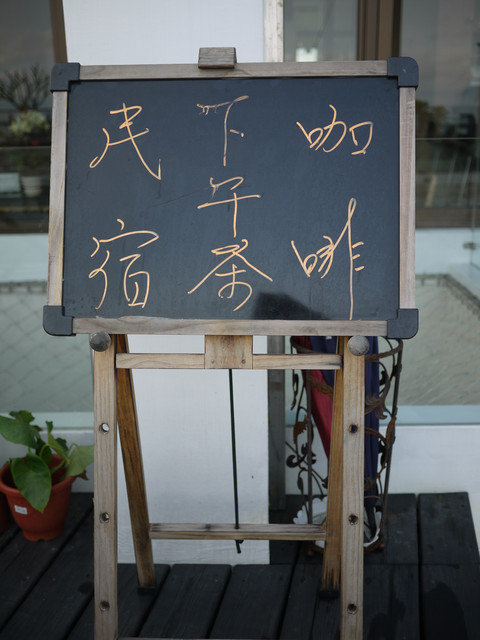 咖啡
下午茶
民宿